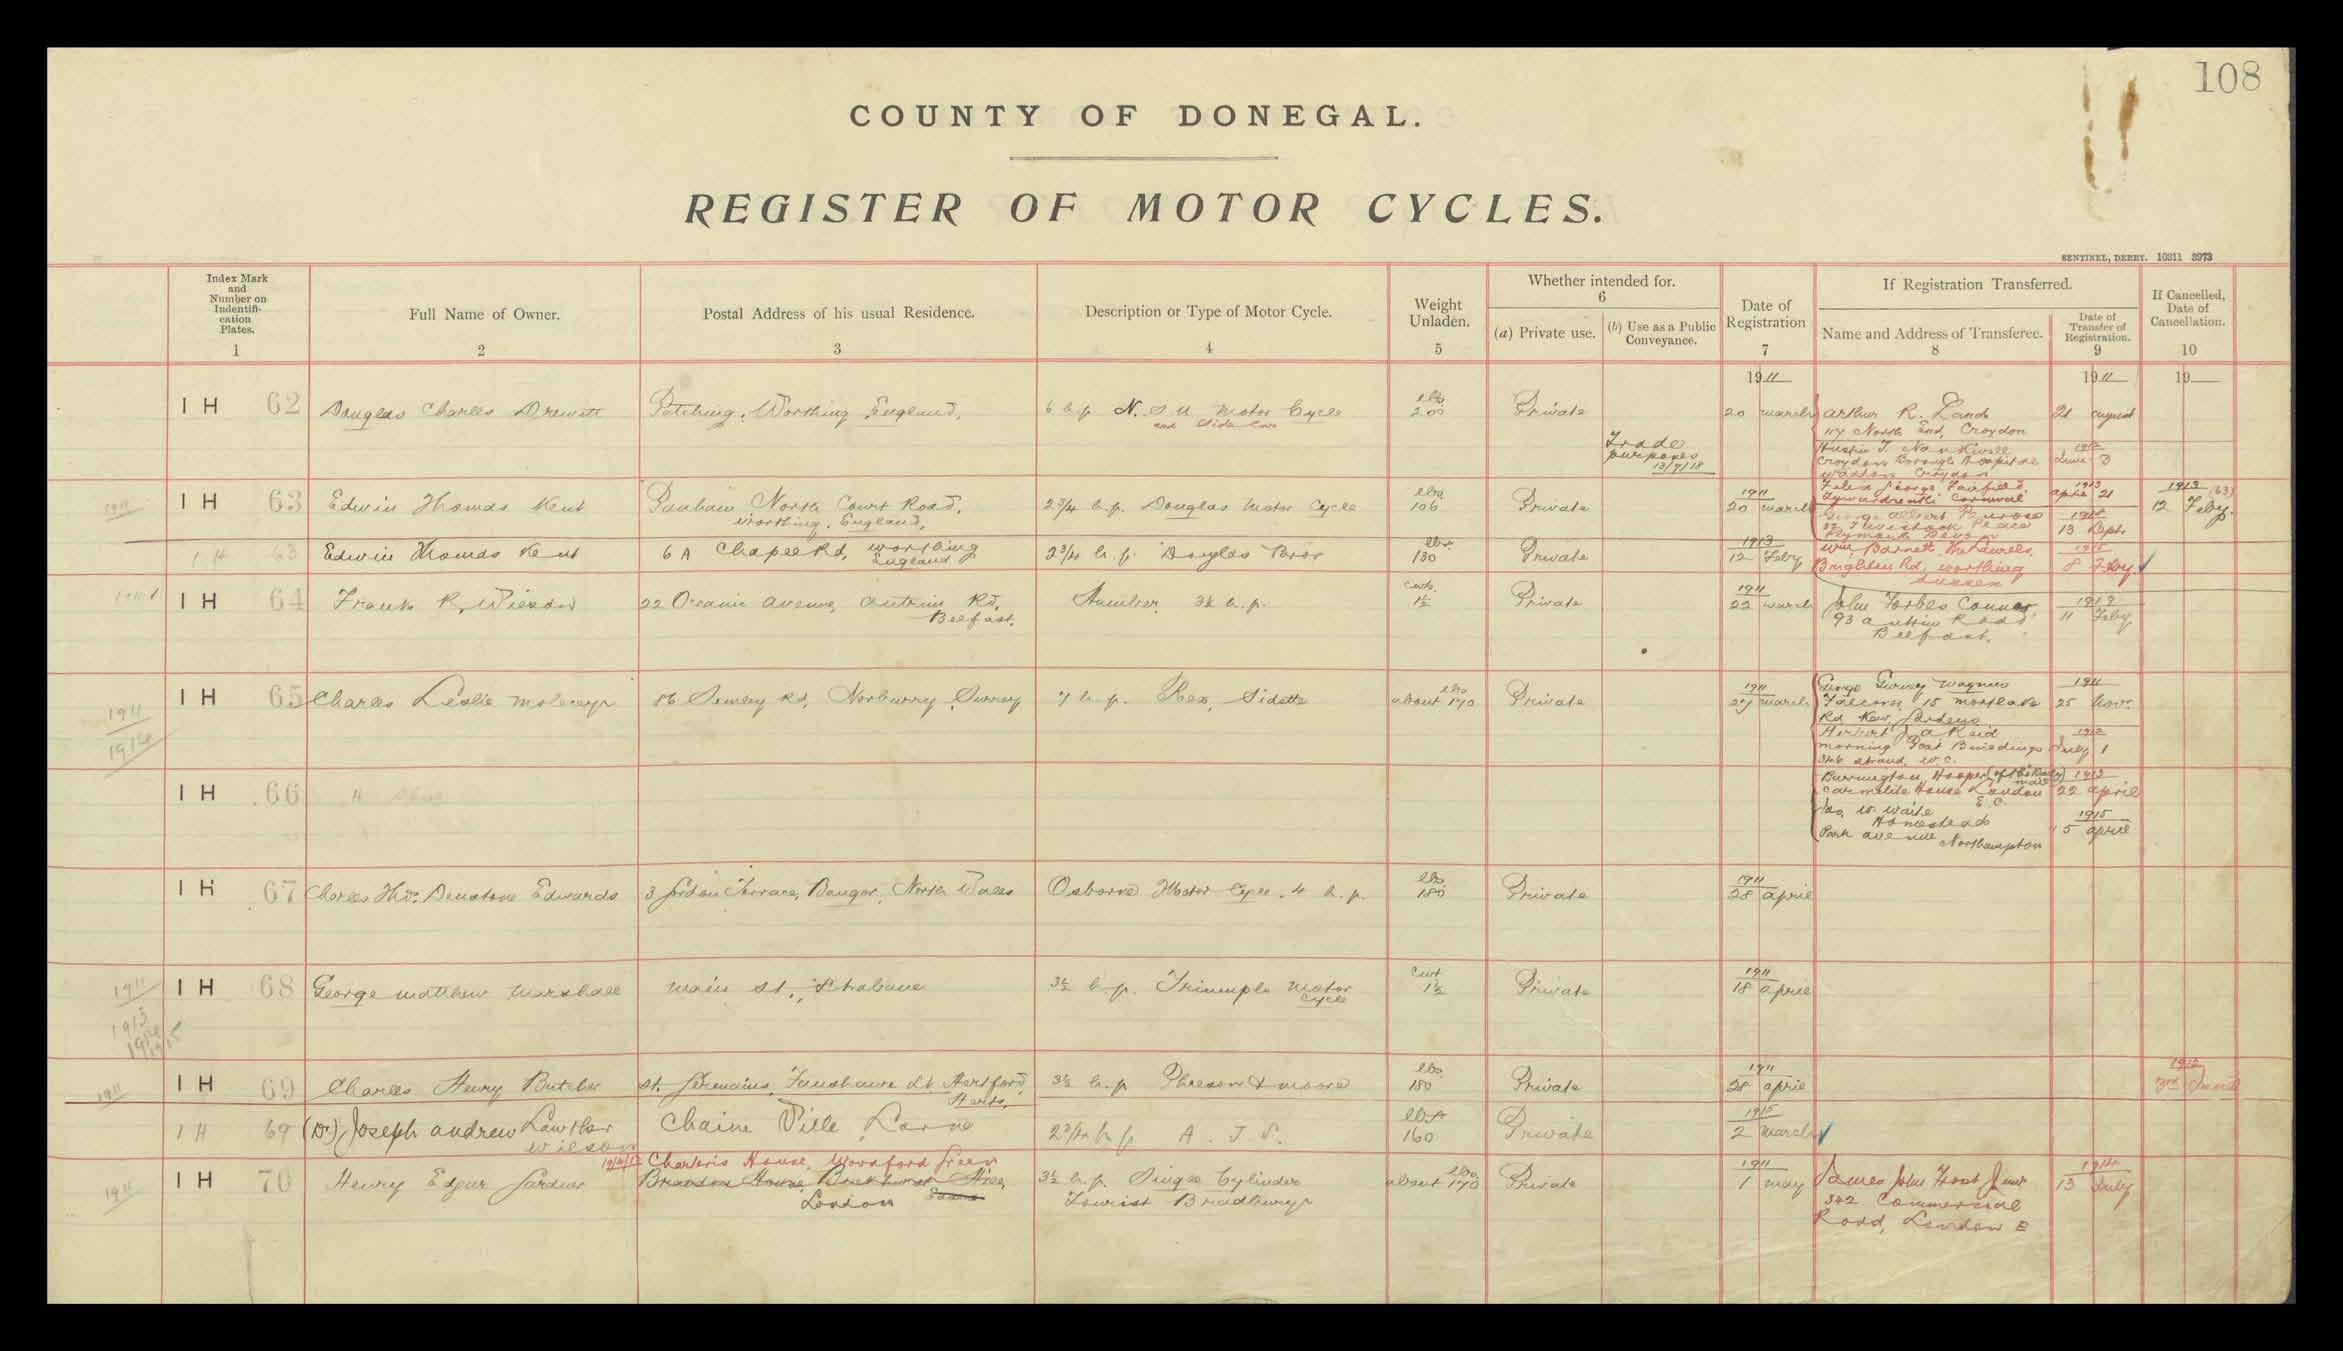 108
COUNTY OF DONEGAL.
REGISTER OF MOTOR CYCLES.
SENTINEL, DERRY. 10311 3973
Index Mark and Number on Indentifi-cation Plates.
1
Full Name of Owner.
2
Postal Address of his usual Residence.
3
Description or Type of Motor Cycle.
4
Weight Unladen.
5
Whether intended for.
6
(a) Private use.
(b) Use as a Public Conveyance.
Date of Registration
7
If Registration Transferred.
Name and Address of Transferee.
8
Date of Transfer of Registration.
9
If Cancelled, Date of Cancellation.
10
1911
1911
19
IH 62 Douglas Charles Drewitt Patching, Worthing, England. 6 h.p. N.S.U Motor Cycle lbs 200 Private 20 March Arthur R. Land 21 August
and Side Car
117 North End, Croydon
Trade purposes 13/7/18
1912
Croydon Borough Hospital June 3
Croydon
1911 IH 63 Edwin Thomas Kent North Court Road, 2¾ h.p. Douglas Motor Cycle lbs 106 Private 1911 20 March Felix George 1913 April 21 1913 (63) 12 Feby.
Worthing, England,
Cornwall
George Albert 1914 13 Sept.
Tavistock Place
Plymouth Devon
IH 63 Edwin Thomas Kent 6A Chapel Rd, Worthing England 2¾ h.p. Douglas lbs. 130 Private 1913 12 Feby Wm. Barnett, The Laurels, 8 Feby
Brighton Rd, Worthing
Sussex
1911 IH 64 Frank R. Wilson 22 Oceanic Avenue, Antrim Rd, Belfast. Humber, 3½ h.p. cwts. 1½ Private 1911 22 March John Forbes Connor 11 Feby
93 Antrim Road
Belfast.
1911
1914
IH 65 Charles Leslie 86 Semley Rd, Norburry, Surrey 7 h.p. Rex, Sidette about lbs 170 Private 1911 27 March George 1911 25 Nov.
15 Mortlake
Rd Kew Gardens
Herbert J. A Reid 1912 July 1
Morning Post Buildings
346 Strand, W.C.
IH 66
Burrington Hooper (of the Daily Mail) 1913 22 April
Carmelite House London E.C.
Jas. W. Waite 1915 5 April
Homestead
Park Avenue Northampton
IH 67 Charles Thos. Denstone Edwards 3 Gordon Terrace, Bangor, North Wales Osborne Motor Cycle. 4 h.p. lbs. 180 Private 1911 28 April
1911
1913
1914
1915
IH 68 George Matthew Marshall Main St., Strabane 3½ h.p. Triumph Motor Cycle cwt 1½ Private 1911 18 April
1911 IH 69 Charles Henry Butcher St. Germains, Fanshawe St. Hertford, Herts. 3½ h.p. Phelson & Moore lbs. 180 Private 1911 28 April 1912 3rd June
IH 69 (Dr.) Joseph Andrew Lawther Wilson Chaine Ville Larne 2¾ h.p. A.J.S. lbs 160 Private 1915 2 March
19/4/12 Charteris House, Woodford Green
1911 IH 70 Henry Edgar Gardner Brandon House Buckhurst Hill, Essex 3½ h.p. Single Cylinder about lbs. 170 Private 1911 1 May James John Frost Junr 1914 13 July
London
Tourist Bradbury
342 Commercial
Road, London E